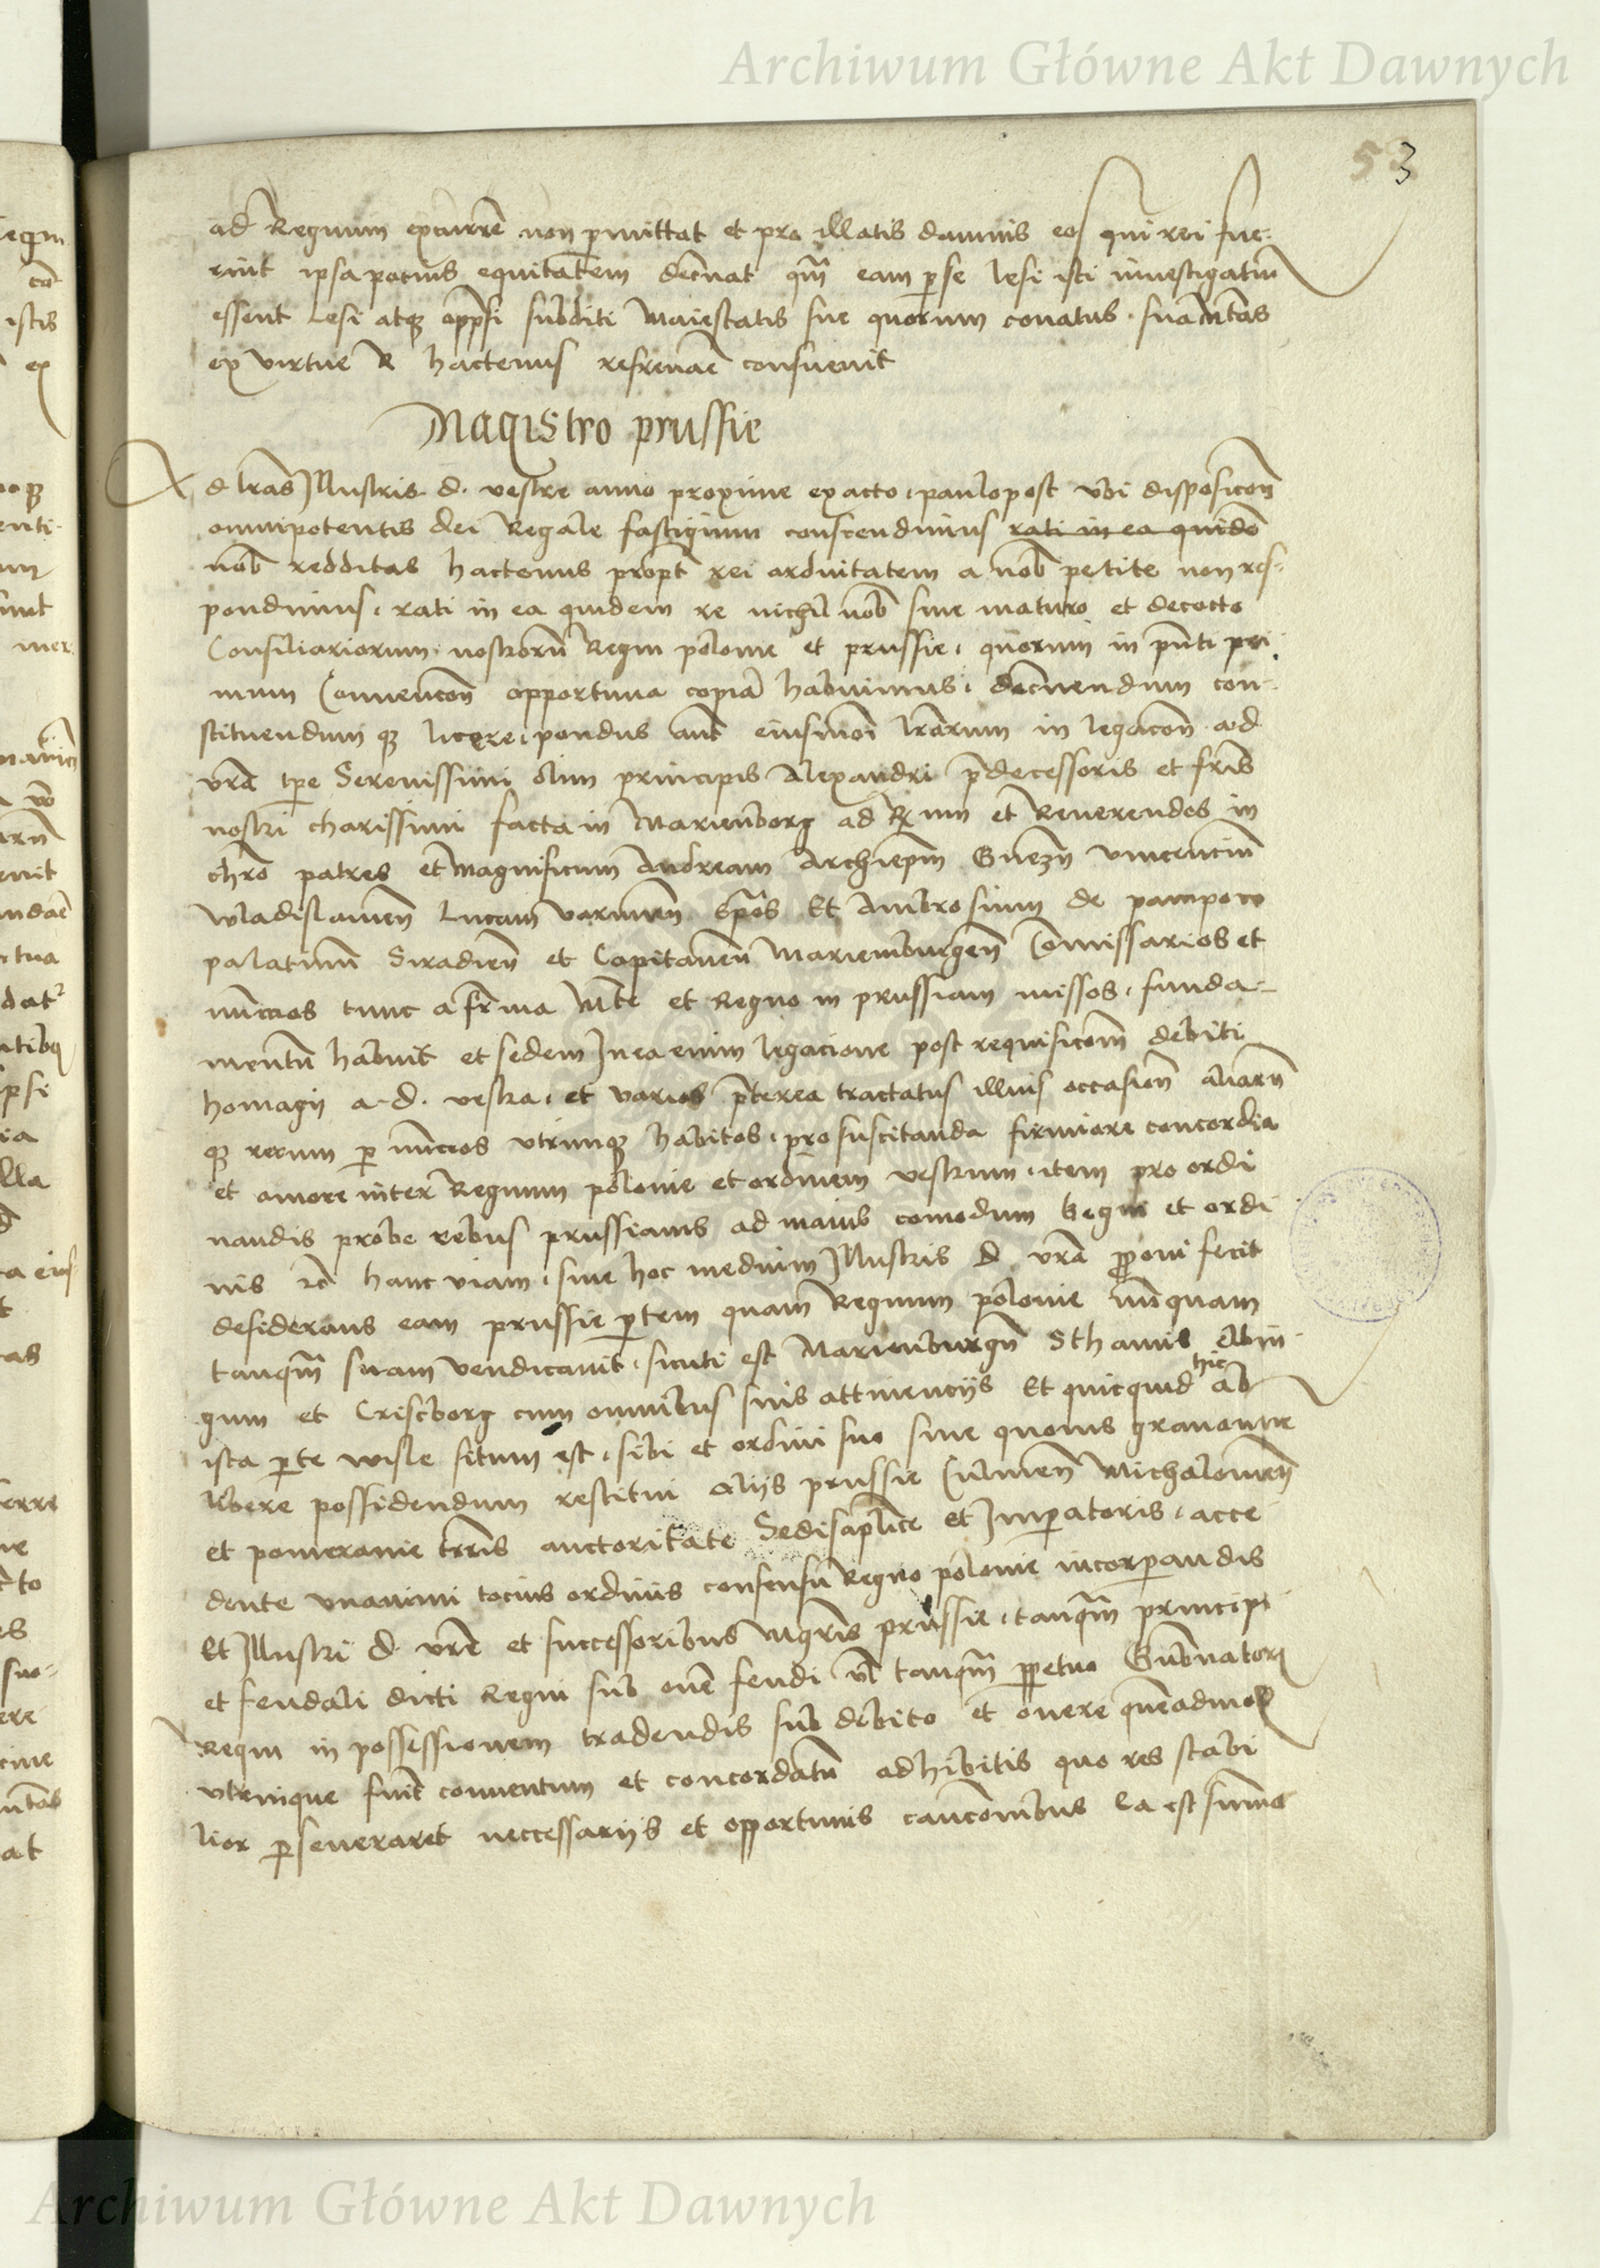 Archiwum Główne Akt Dawnych
53
ad Regnum excurrē non p̄mittat et pro illatis damnis eos qui rei fue-
rint ipsa potius equitatem decn̄at qm̄ eam p̄se lesi isti inuestigatur̄
essent Lesi atq₃ opp̄ssi subditi Maiestatis sue quorum conatus sua mtas
ex virtue R hactenus refrenaē consueuit
Magistro prussie
Ad lrās Illustris d. vestre anno proxime exacto, paulopost vbi disposicōn
omnipotentis dei Regale fastigium conscendimus rati in ea quidē
nob̄ redditas hactenus propt̄ rei arduitatem a nob̄ petite non res-
pondimus, rati in ea quidem re nichil nob̄ sine maturo et decocto
Consiliariorum nostrorū Regni polonie et prussie, quorum in pn̄ti pri
mum Conuencōn opportuna copiā habuimus, decn̄endum con-
stituendum q₃ licere, pondus aut̄ eiusmōi lrārum in legacōn ad
vrā tp̄e Serenissimi olim principis Alexandri p̄decessoris et frīs
nostri charissimi facta in Marienborg ad R um et Reuerendos in
chrō patres et Magnificum Andream Archiep̄m Gnezn̄ vincenciū
wladislauien̄ Lucam varmien̄ ep̄os Et Ambrosium de pampow
palatinū Siradien̄ et Capitaneū Mariemburgen̄ Comissarios et
nūccios tunc a frna Mte et Regno in prussiam missos, funda-
mentū habuit et sedem In ea enim legacione post requisicōm debiti
homagij a d. vestra, et varios p̄terea tractatus illius occasion̄ aliarū
q₃ rerum p̄ nūccios vtrinq₃ habitos, pro suscitanda firmiore concordia
et amore inter Regnum polonie et ordinem vestrum, item pro ordi
nandis probe rebus prussianis ad maius comodum Regni et ordi
nis rc̄ hanc viam, siue hoc medium Illustris d vrā p̄poni fecit
desiderans eam prussie p̄tem quam Regnum polonie nūnquam
tanqm̄ suam vendicauit, sicuti est Marienburgn̄ Sthamis Elbin-
gum et Cristborg cum omnibus suis attinencijs Et quicquid hic ab
ista p̄te wisle situm est, sibi et ordini suo sine quouis grauamine
libere possidendum restitui Alijs prussie Culmen̄ Michalouien̄
et pomeranie trr̄is auctoritate Sedis aplice et Imp̄atoris, acce
dente vnanimi tocius ordinis consensu Regno polonie incorp̄andis
Et Illustri d vrē et successoribus Mgrīs prussie, tanqm̄ principi
et feudali dicti Regni sub on̄e feudi vl̄ tanqm̄ p̄petuo Gub̄natori
Regni in possessionem tradendis sub debito et onere quēadmod̄
vtrinque fuit conuentum et concordatū adhibitis quo res stabi
lior p̄seueraret neccessarijs et opportunis caucōnibus Ea est summa
Archiwum Główne Akt Dawnych